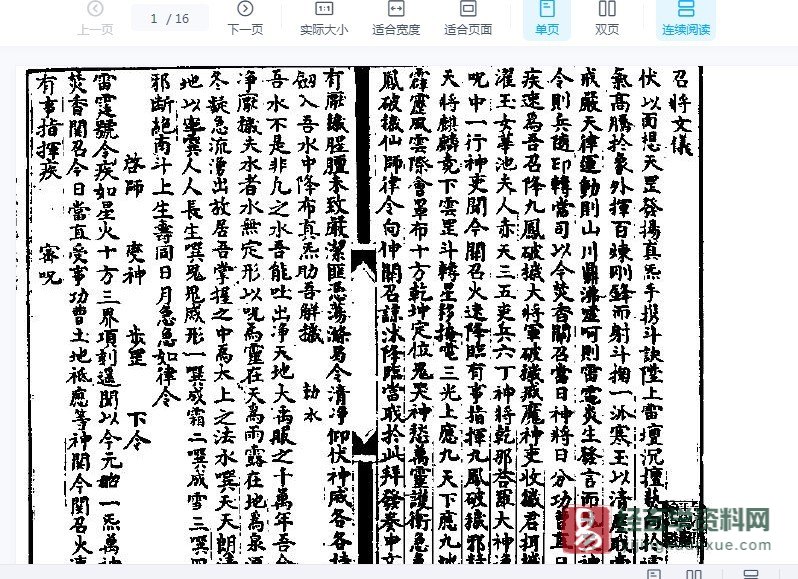 上一页
1 / 16
下一页
实际大小
适合宽度
适合页面
单页
双页
连续阅读
召將文儀
伏以面想天罡發揚真炁手携斗訣陞上雷壇沉檀
氣高騰於象外揮百煉剛鋒而射斗掬一泒寒玉以清
戒嚴天律運動則山川鼎沸噓呵則雷電炎生發言而
令則兵隨印轉當司以今焚香關召當日神將日分功曹直日
疾速爲吾召降九鳳破穢大將軍破穢威魔神吏收穢君
濯玉女華池夫人赤天三五吏兵六丁神將乾那答羅大神
呪中一行神吏聞今關召火速降臨有事指揮九鳳破穢邪
天將麒麟竟下雲罡斗轉星移掩
三光上應九天下應九地
霹靂風雲際會罩布十方乾坤定位鬼哭神愁萬靈護衛急
鳳破穢仙師律令向伸關召諒沐降臨當職於此拜發奏申文
有厭穢腥膻未致嚴潔匪憑蕩滌曷令清淨仰伏神威各各
劍入吾水中降布真炁助吾解穢
勅水
吾水不是非凡之水吾能吐出淨天地大毒服之千萬年吾
淨厭穢夫水者水無定形以呪爲靈在天爲雨露在地爲泉
冬凝急流湧出故居吾掌握之中爲太上之法水噀天天朗
地以
人人長生噀鬼鬼滅形一噀成霜二噀成雪三噀
邪斷絕南斗上生壽同日月急急如律令
啓師
變神
步罡
下令
雷霆號令疾如星火十方三界項刻遥聞以今元
一炁萬神
焚香關召今日當直受事功曹土地祗應等神聞今關召火
有事指揮疾
密呪
易
资料网
xue.com